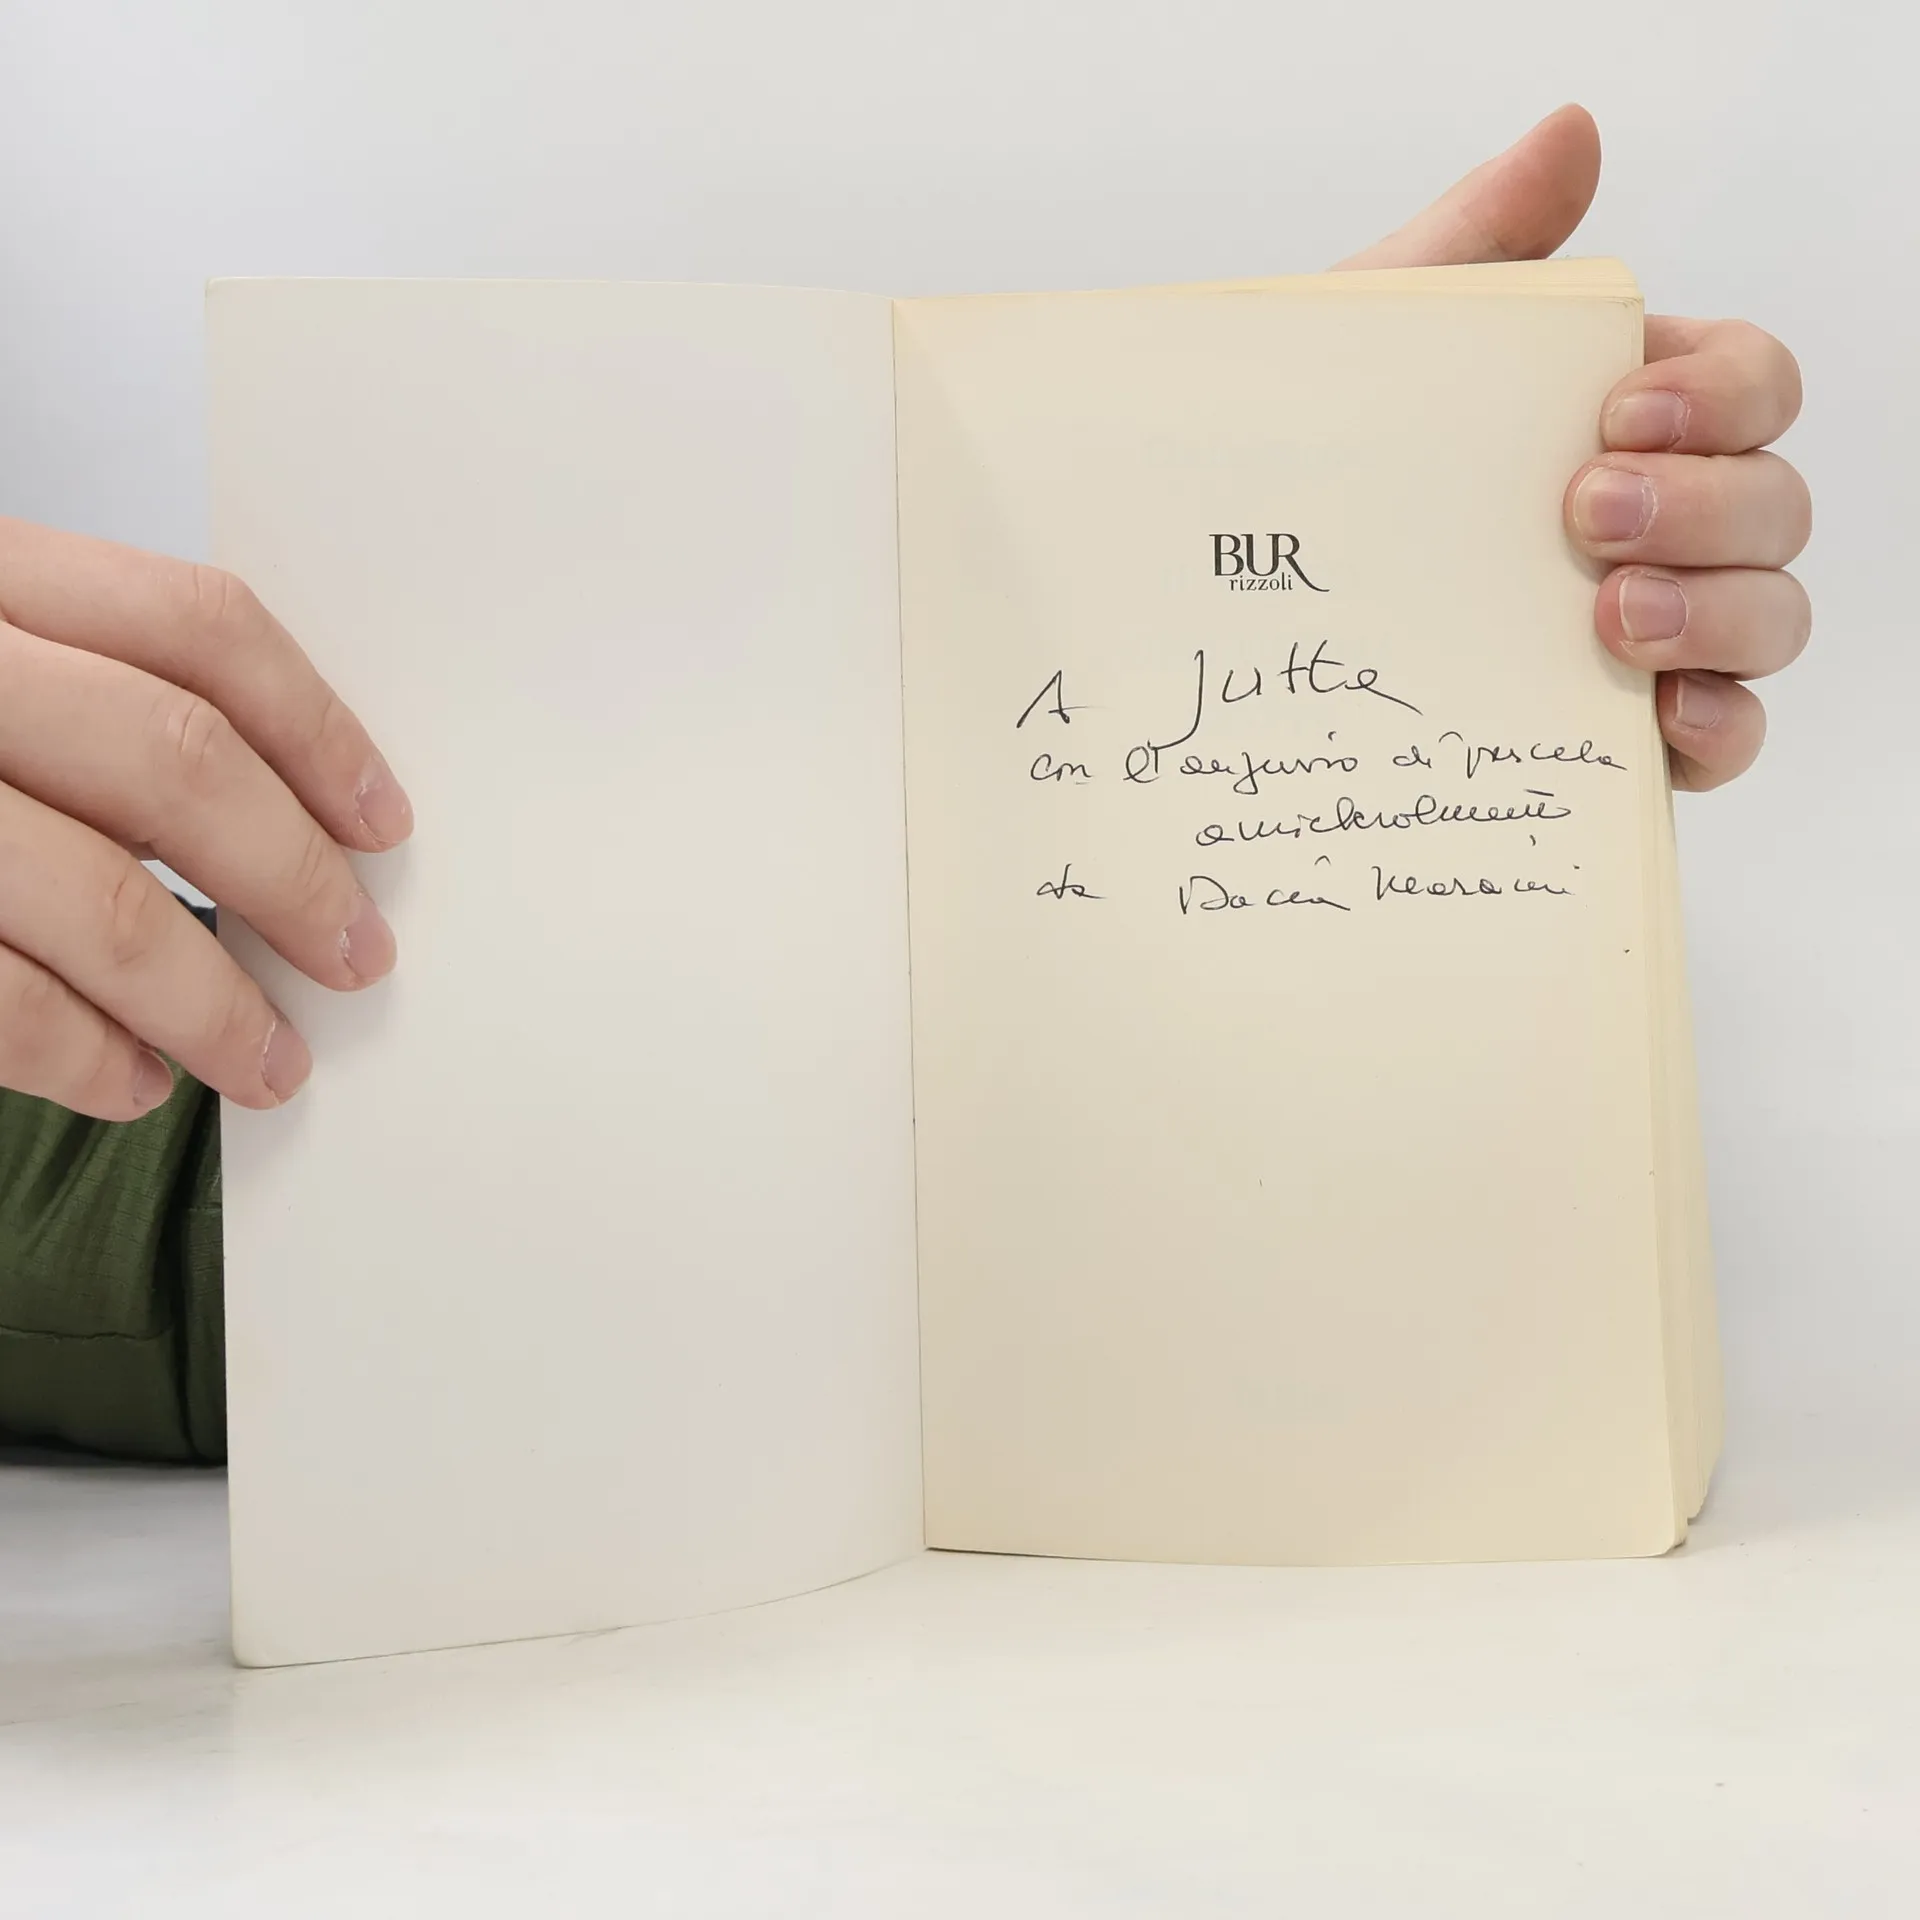 BUR
rizzoli
A Jutta
con l'augurio di
amichevolmente
da Dacia Maraini